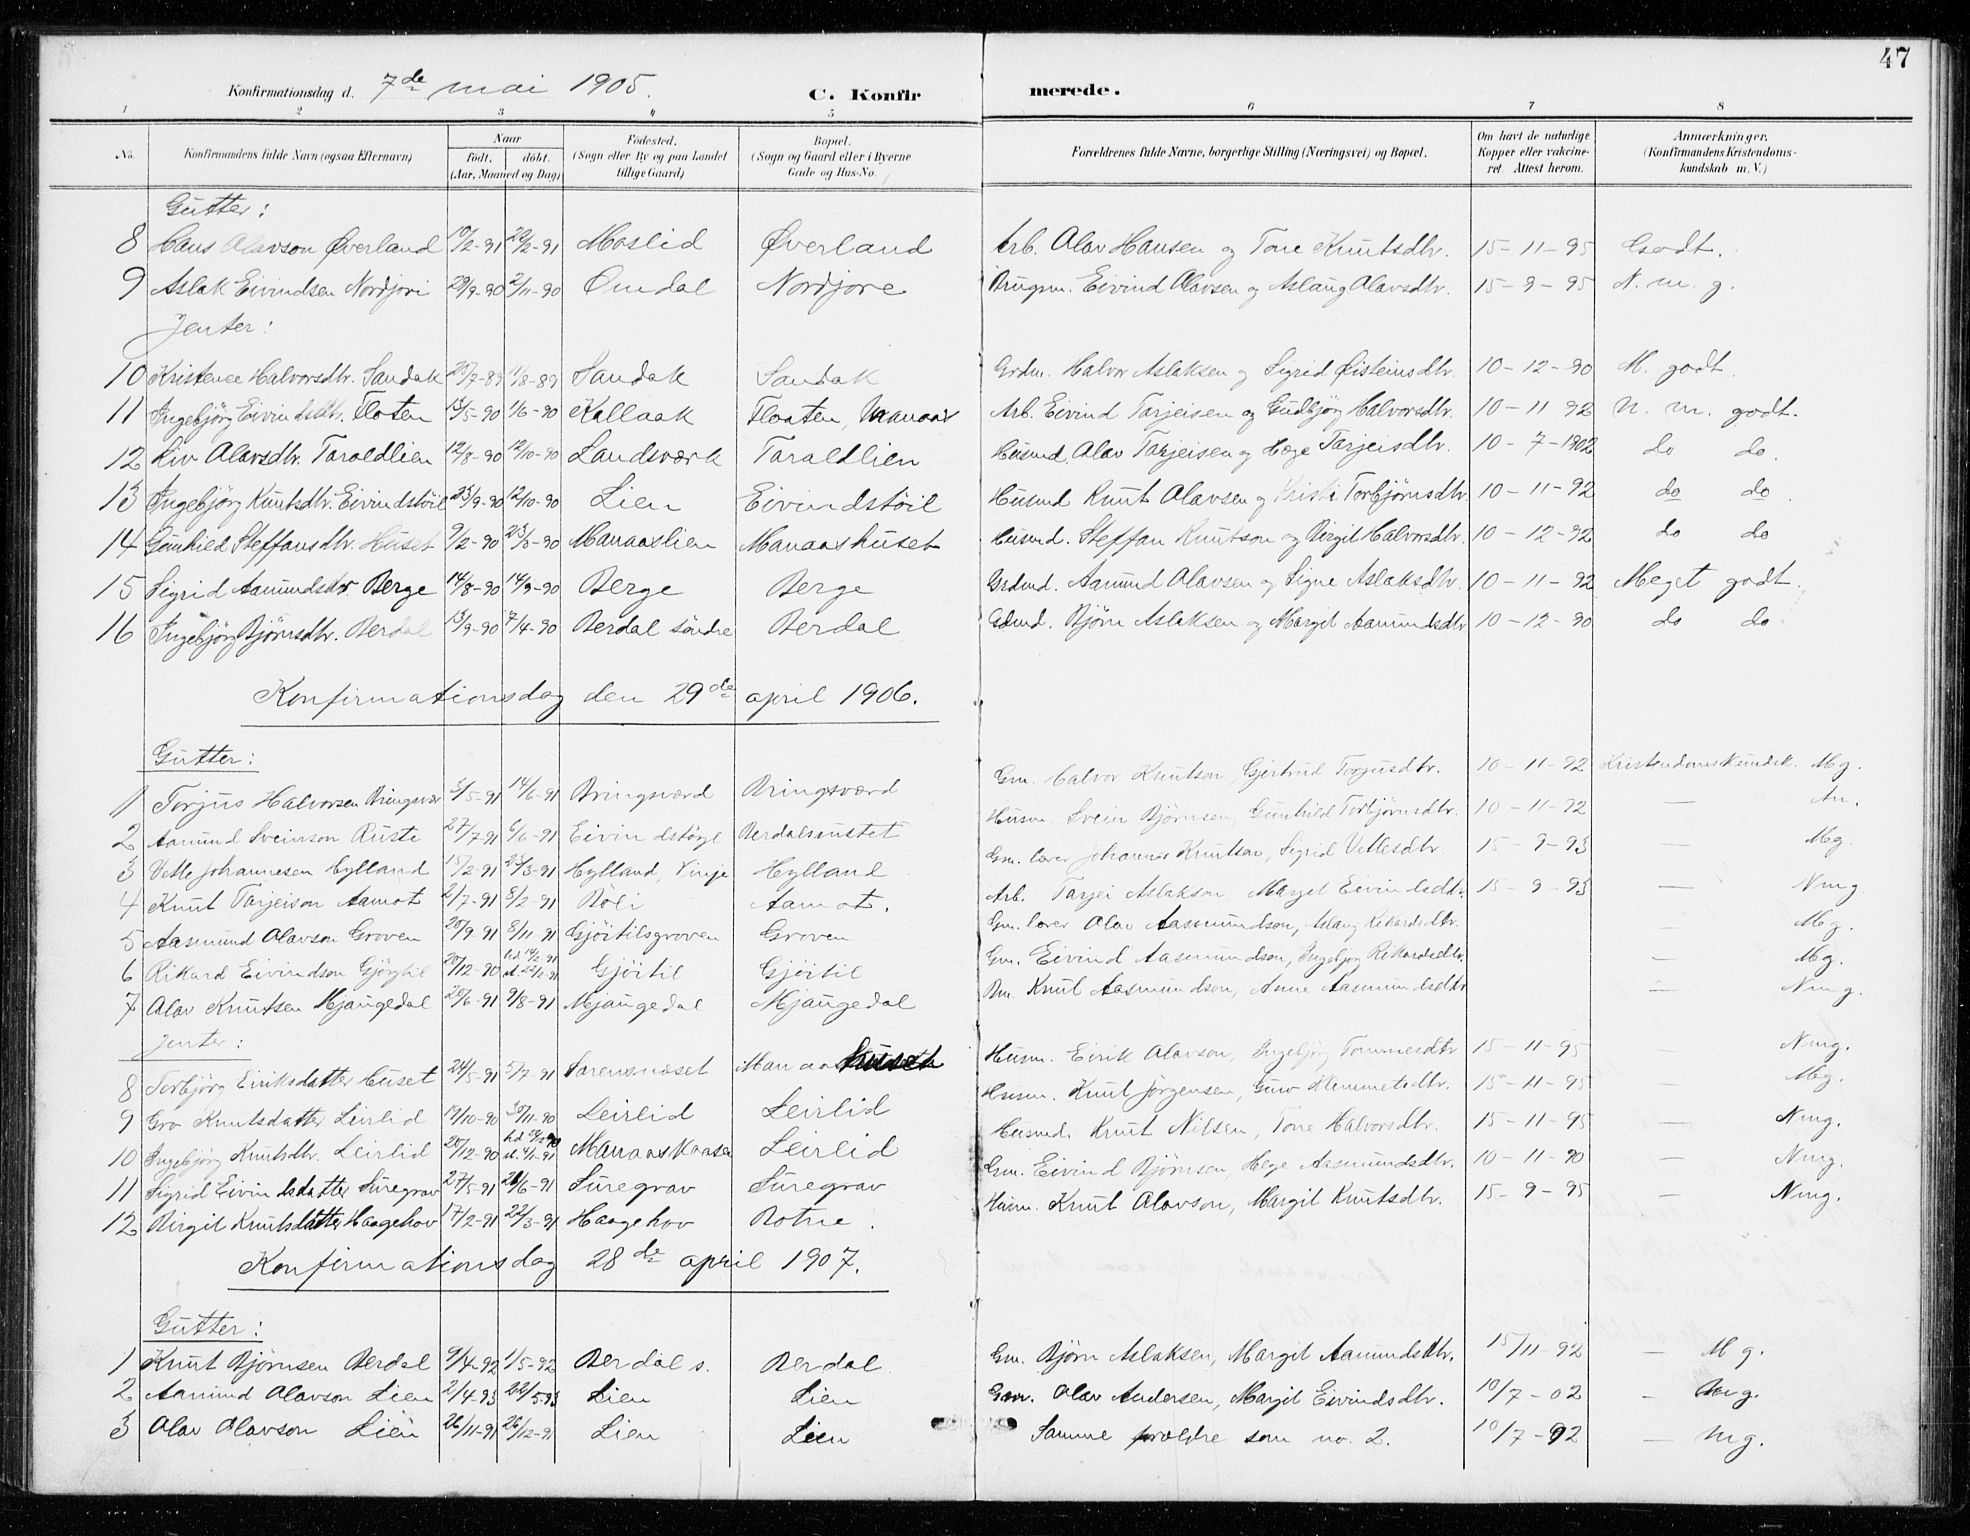 47
Konfirmationsdag d. 7de mai 1905. C. Konfirmerede.
1 2 3 4 5 6 7 8
No. Konfirmandens fulde Navn (ogsaa Efternavn) Naar født. døbt. (Aar, Maaned og Dag) Fødested. (Sogn eller By og paa Landet tillige Gaard) Bopæl. (Sogn og Gaard eller i Byerne Gade og Hus-No.) Forældrenes fulde Navne, borgerlige Stilling (Næringsvei) og Bopæl. Om havt de naturlige Kopper eller vakcineret. Attest herom. Anmærkninger. (Konfirmandens Kristendomskundskab m. V.)
Gutter:
8 Hans Olavson Øverland 19/2-91 29/2-91 Moslid Øverland Arb. Olav Hansen og Tone Knutsdtr. 15-11-95 Godt.
9 Aslak Eivindsen Nordjore 29/9-90 2/11-90 Omdal Nordjore Brugsm. Eivind Olavsen og Aslaug Olavsdtr. 15-9-95 N. m. g.
Jenter:
10 Kristence Halvorsdtr. Sandok 25/7-89 11/8-89 Sandok Sandok Grdm. Halvor Aslaksen og Sigrid Øisteinsdtr. 10-12-90 M. godt.
11 Ingebjörg Eivindsdtr. Floten 15/5-90 1/6-90 Kallaak Flaaten, Manaas Arb. Eivind Tarjeisen og Gudbjørg Halvorsdtr. 10-11 92 N. m. godt.
12 Liv Olavsdtr. Taraldlien 12/8-90 12/10-90 Landsværk Taraldlien Husmd. Olav Tarjeisen og Hæge Tarjeisdtr. 10-7-1902 do do.
13 Ingebjörg Knutsdtr. Eivindstöil 23/9-90 12/10-90 Lien Eivindstöil Husmd Knut Olavsen og Kristi Torbjörnsdtr. 10-11-92 do do.
14 Gunhild Steffansdtr. Huset 9/2-90 23/3-90 Manaaslien Manaashuset Husmd. Steffan Knutson og Birgit Halvorsdtr. 10-12-92 do do
15 Sigrid Aamundsdtr Berge 14/8-90 14/9-90 Berge Berge Grdmd. Aamund Olavsen og Signe Aslaksdtr. 10-11-92 Meget godt.
16 Ingebjörg Bjørnsdtr. Berdal 13/3-90 7/4-90 Berdal söndre Berdal Gdmd. Bjørn Aslaksen og Margit Aamundsdtr 10-12-90 do do.
Konfirmationsdag den 29de april 1906.
Gutter:
1 Torjus Halvorsen Bringsvær 3/5-91 14/6-91 Bringsværd Bringsværd Gm. Halvor Knutson, Gjertrud Torjusdtr. 10-11-92 Kristendomskundsk. Mg.
2 Aamund Sveinson Ruste 27/7-91 6/6-91 Eivindstöyl Berdalsrustet Husm. Svein Bjørnsen, Gunhild Torbjørnsdtr. 10-11-92 —
3 Vetle Johannesen Hylland 15/2-91 23/3-91 Hylland, Vinje Hylland Gm. lærer Johannes Knutson, Sigrid Vetlesdtr. 15-9-93 — Mg.
4 Knut Tarjeison Aamot 2/7-91 8/2-91 Böli Aamot. Arb. Tarjei Aslakson, Margit Eivindsdtr. 15-9-93 — Nmg.
5 Aasmund Olavson Groven 20/9-91 8/11-91 Gjöitilsgroven Groven Gm. lærer Olav Aasmundson, Aslaug Rikardsdtr. — Mg.
6 Rikard Eivindson Gjöytil 20/12-90 Gjöitil Gjöitil Gm. Eivind Aasmundson, Ingebjørg Rikardsdtr. — Mg.
7 Olav Knutsen Mjaugedal 20/6-91 9/8-91 Mjaugedal Mjaugedal Bm. Knut Aasmundson, Anne Aasmundsdtr — Nmg.
Jenter:
8 Torbjörg Eiriksdatter Huset 24/5-91 5/7-91 Sarensnæset Manaashuset Husm. Eirik Olavson, Ingebjörg Tommesdtr 15-11-95 — Nmg.
9 Gro Knutsdatter Leirlid 19/10-90 30/11-90 Leirlid Leirlid Husm. Knut Jørgensen, Guro Klemmetsdtr. 15-11-95 — Mg.
10 Ingebjörg Knutsdtr. Leirlid 20/12-90 Manaaskaasa Leirlid Husmd. Knut Nilsen, Tone Halvorsdtr. 15-11-95 — Nmg.
11 Sigrid Eivindsdatter Suregrav 27/5-91 21/6-91 Suregrav Suregrav Gm. Eivind Bjørnsen, Hege Aasmundsdtr. 10-11-90 — Nmg.
12 Birgit Knutsdatter Haagehov 17/2-91 22/3-91 Haagehov Botne. Husm. Knut Olavson, Margit Knutsdtr. 15-9-95 — Nmg.
Konfirmationsdag 28de april 1907.
Gutter:
1 Knut Bjørnsen Berdal 9/4-92 1/5-92 Berdal s. Berdal Gm. Bjørn Aslaksen, Margit Aamundsdtr. 15/11-92 — Mg.
2 Aamund Olavson Lien 2/4-93 22/5-93 Lien Lien Gm. Olav Andersen, Margit Eivindsdtr. 10/7-02 — Mg.
3 Olav Olavson Lien 26/11-91 26/12-91 Lien Lien Samme forældre som no. 2. 10/7-92 — Mg.